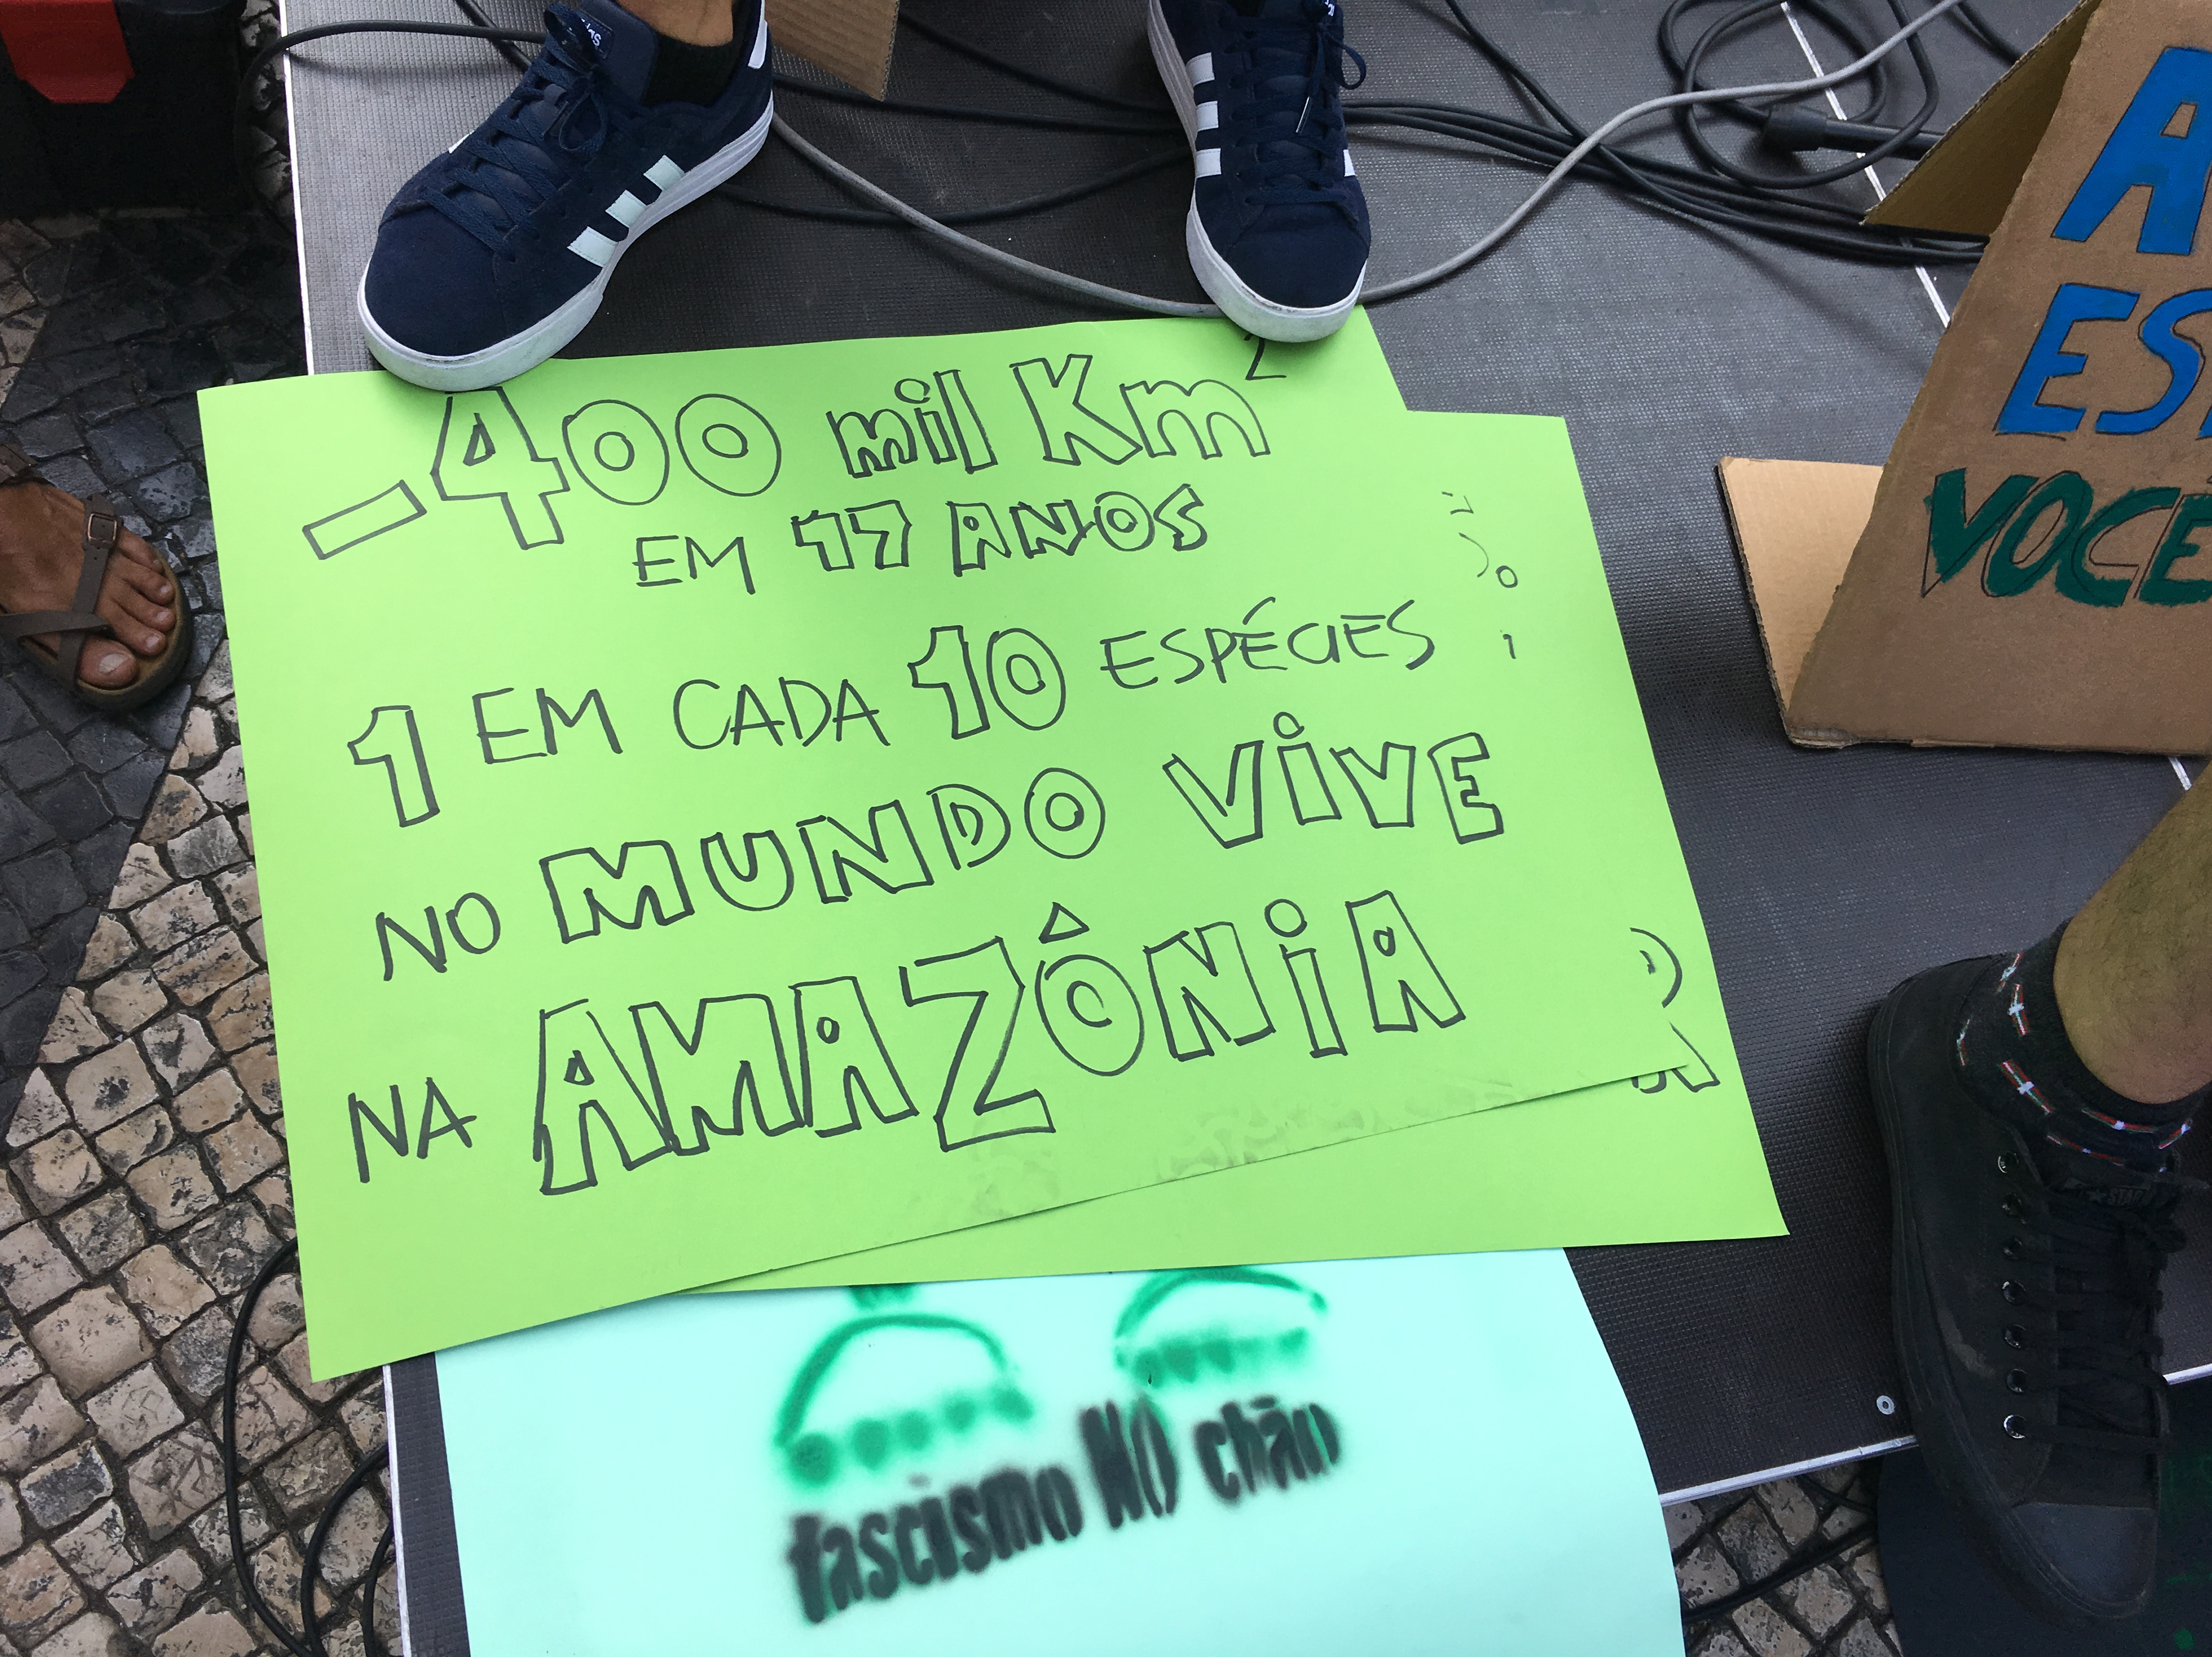 -400 mil Km²
EM 17 ANOS
1 EM CADA 10 ESPÉCIES
NO MUNDO VIVE
NA AMAZÔNIA
fascismo NO chão
VOCÊ